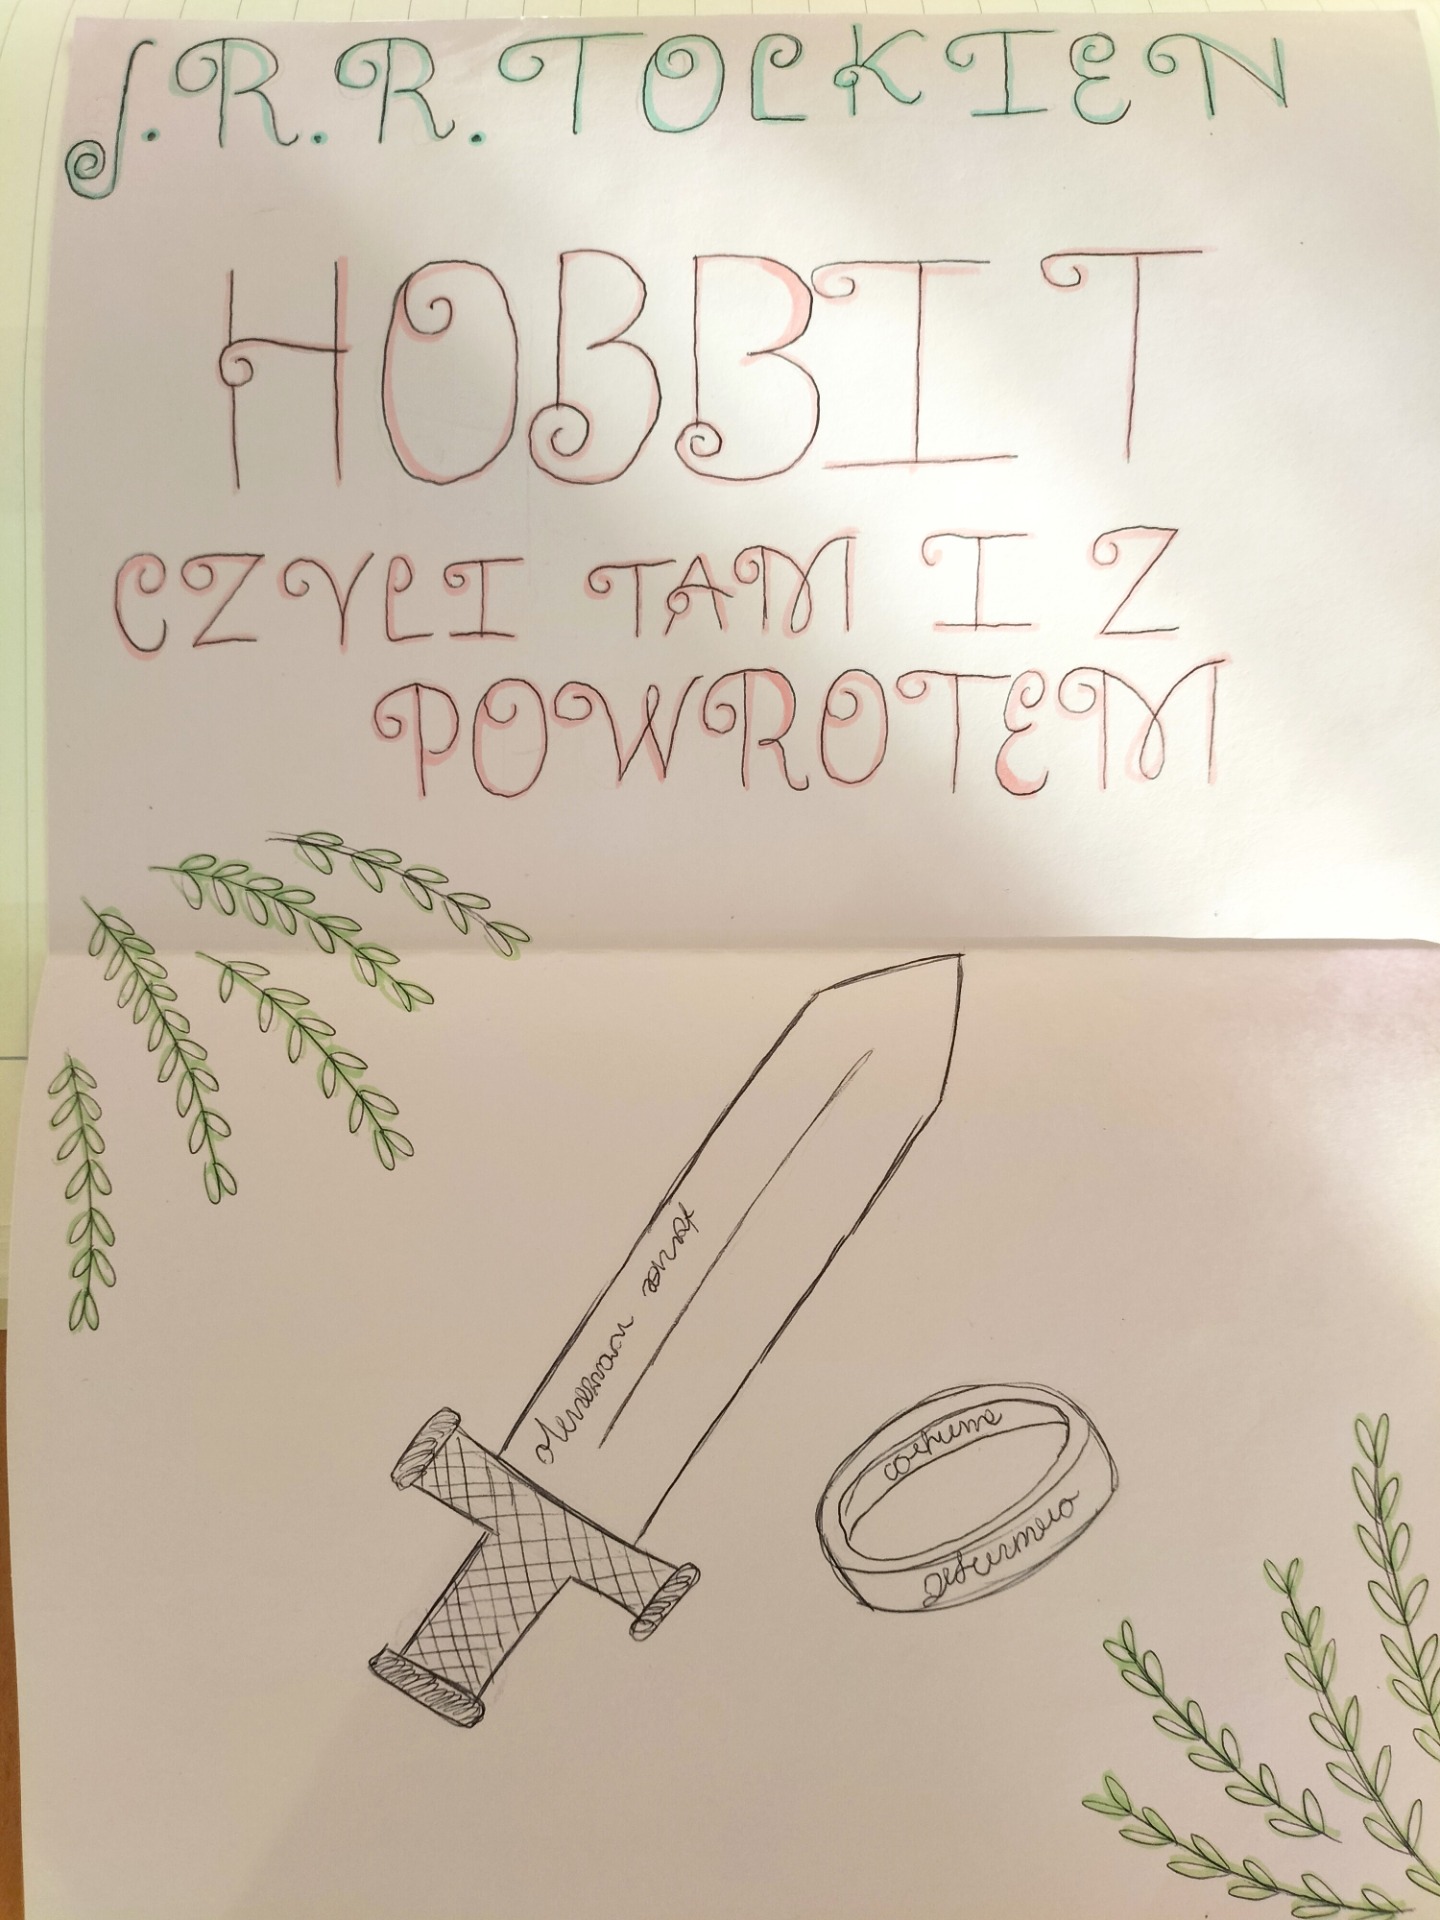 J.R.R.TOLKIEN
HOBBIT
CZYLI TAM I Z
POWROTEM